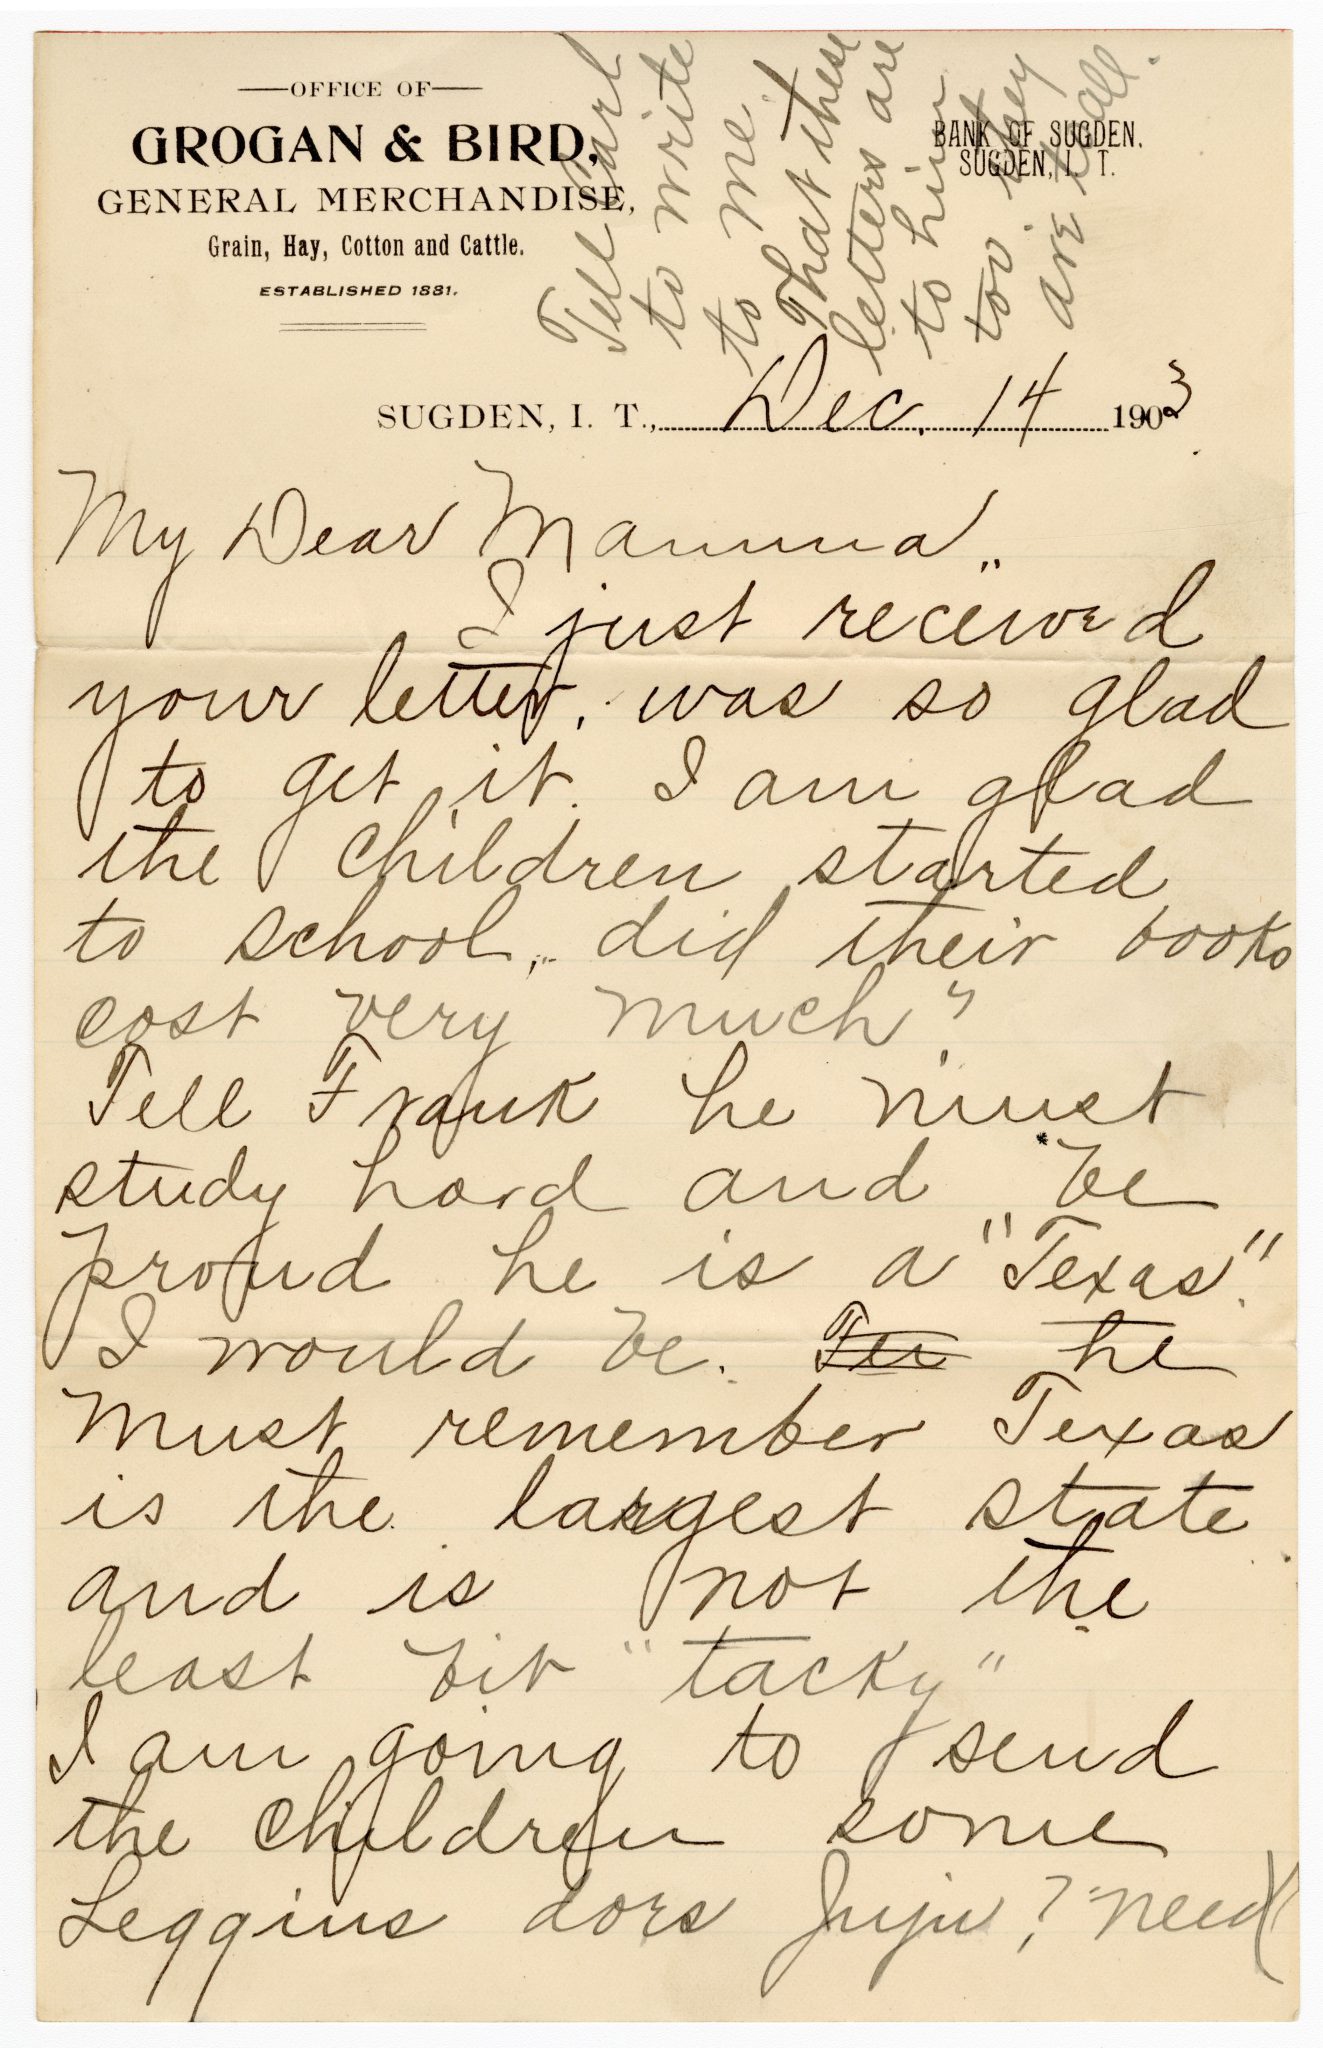 OFFICE OF
GROGAN & BIRD,
GENERAL MERCHANDISE,
Grain, Hay, Cotton and Cattle.
ESTABLISHED 1881.
BANK OF SUGDEN,
SUGDEN, I. T.
Tell Carl
to write
to me.
That these
letters are
to him
too. they
are to all.
SUGDEN, I. T., Dec. 14 1903.
My Dear Mamma..
I just received
your letter. was so glad
to get it. I am glad
the children started
to school,.. did their books
cost very much?
Tell Frank he must
study hard and be
proud he is a "Texas".
I would be. he
must remember Texas
is the largest state
and is not the
least bit "tacky"
I am going to send
the children some
Leggins does Juju? need